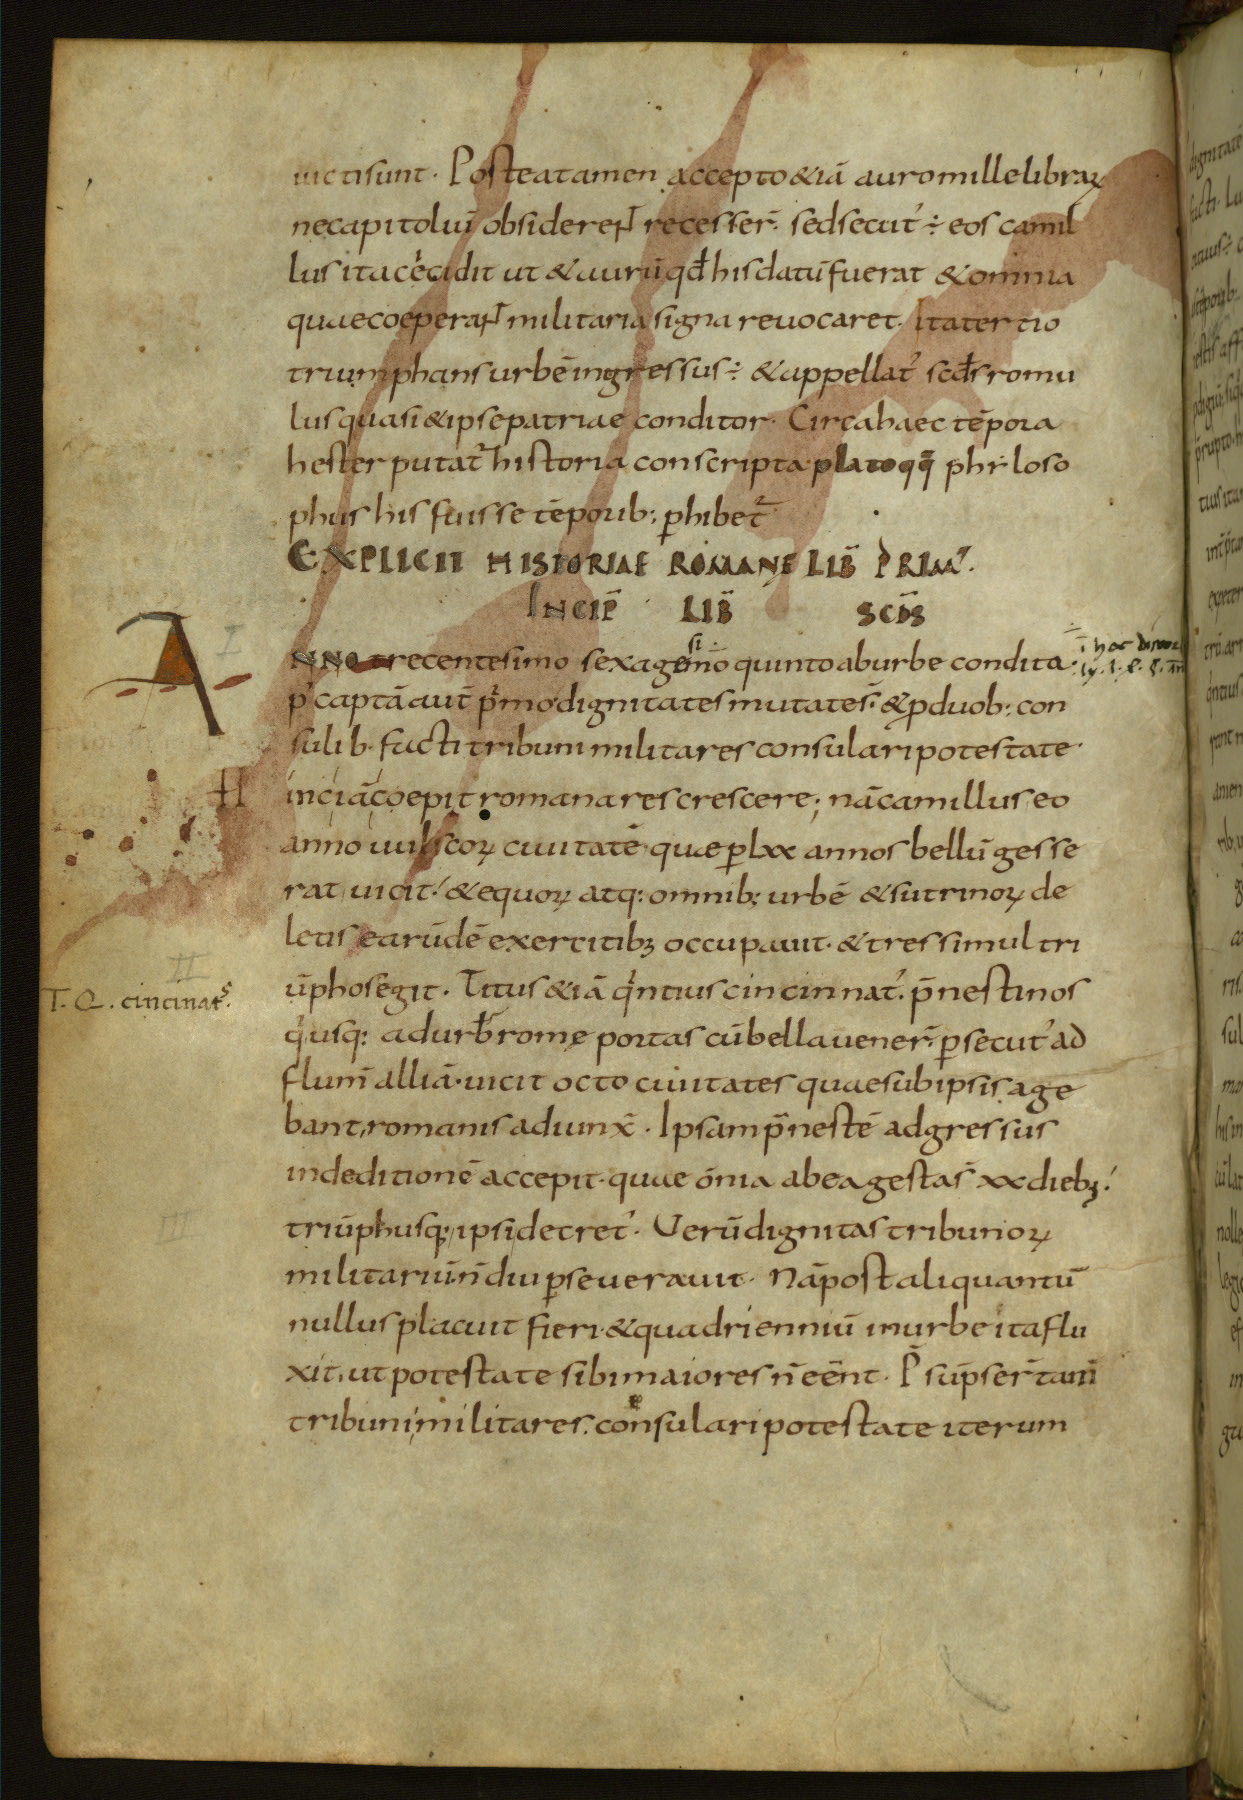 uictisunt. Posteatamen accepto &iā auro mille libraꝝ
necapitoluī obsidereꞃ̄t recesser̄. sedsecut᾿ ÷ eos camil
lus ita cec̓idit ut & aurū qđ his datū fuerat & omnia
quae coeperaꞃ̄t militaria signa reuocaret. Ita tertio
triumphans urbē ingressus ÷ & appellat᾿ scđs romu
lus quasi & ipse patriae conditor. Circa haec tēpora
hester putat᾿ historia conscripta plato qq̄ philoso
phus his fuisse tēporib; ꝑhibet᾿
EXPLICIT HISTORIAE ROMANE LIB̄ PRIM᾿.
INCIP̄ LIB̄ SCD̄S
I
ANNO trecentesimo sexagesimo quinto ab urbe condita
p᾿ captā aut̄ p̓mo dignitates mutateś. & ꝓ duob; con
sulib. facti tribuni militares consulari potestate.
H
inc iā coepit romana res crescere; nā camillus eo
anno uulscoꝝ ciuitatē quae ꝑ lxx annos bellū gesse
rat uicit. & equoꝝ atq; omnib; urbē & sutrinoꝝ de
letis earūdē exercitibꝫ occupauit. & tres simul tri
II
ūphos egit. Titus &iā q̓ntius cincinnat᾿. p̄nestinos
T. Q. cincinat᾿.
q̓ usq; ad urb̄ rome portas cū bella uener̄. ꝑsecut᾿ ad
flum̄ alliā. uicit octo ciuitates quae sub ipsis age
bant, romanis adiunx̄. Ipsam p̄nestē adgressus
in deditionē accepit. quae om̄ia ab ea gesta s̄ xx diebꝫ.
III
triūphusq; ipsi decret᾿. Uerū dignitas tribunoꝝ
militariū n̄ diu ꝑseuerauit. Nā post aliquantū
nullus placuit fieri. & quadrienniū in urbe ita flu
xit, ut potestate sibi maiores n̄ eēnt. P᾿sūpser̄ tam̄
tribuni militares. consulari potestate iterum